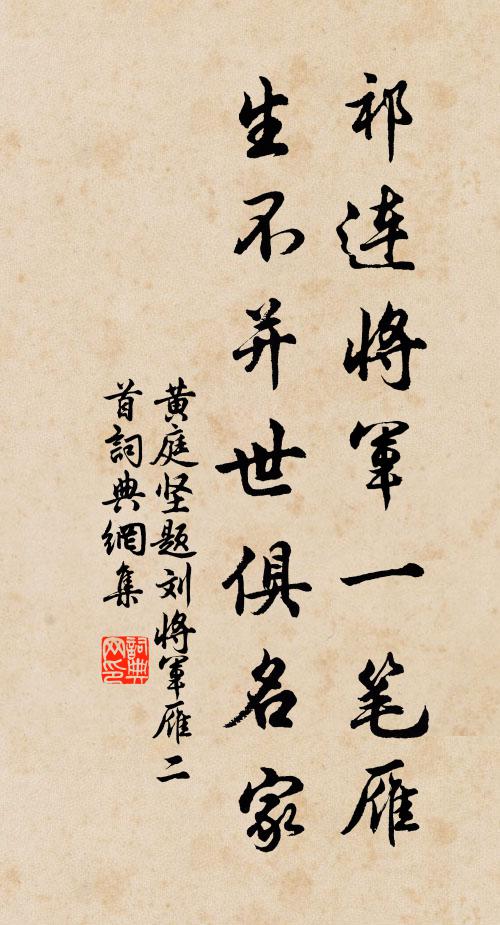 祁连将军一笔雁
生不并世俱名家
黄庭坚题刘将军雁二
首詞典網集
詞典
网印